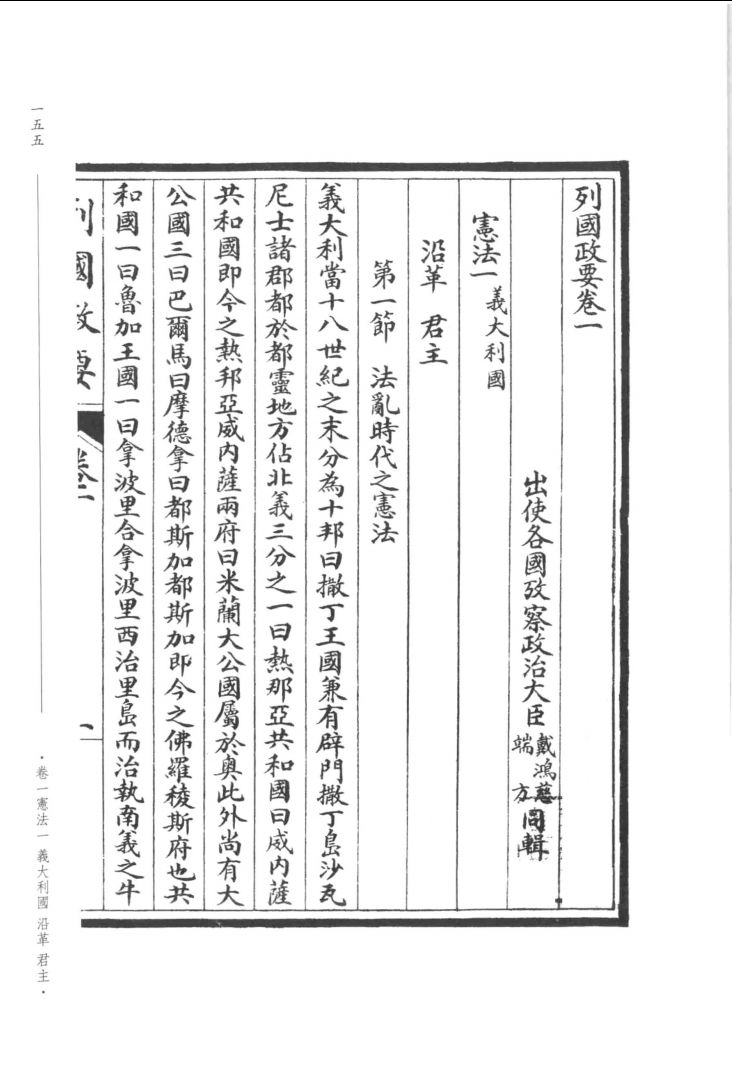 列國政要卷一
出使各國攷察政治大臣 戴鴻慈 端方 同輯
憲法一 義大利國
沿革 君主
第一節 法亂時代之憲法
義大利當十八世紀之末分為十邦曰撒丁王國兼有辟門撒丁島沙瓦
尼士諸郡都於都靈地方佔北義三分之一曰熱那亞共和國曰威內薩
共和國即今之熱邦亞威內薩兩府曰米蘭大公國屬於奧此外尚有大
公國三曰巴爾馬曰摩德拿曰都斯加都斯加即今之佛羅稜斯府也共
和國一曰魯加王國一曰拿波里合拿波里西治里島而治執南義之牛
列國政要 卷一
一
一五五
·卷一憲法一 義大利國 沿革 君主·